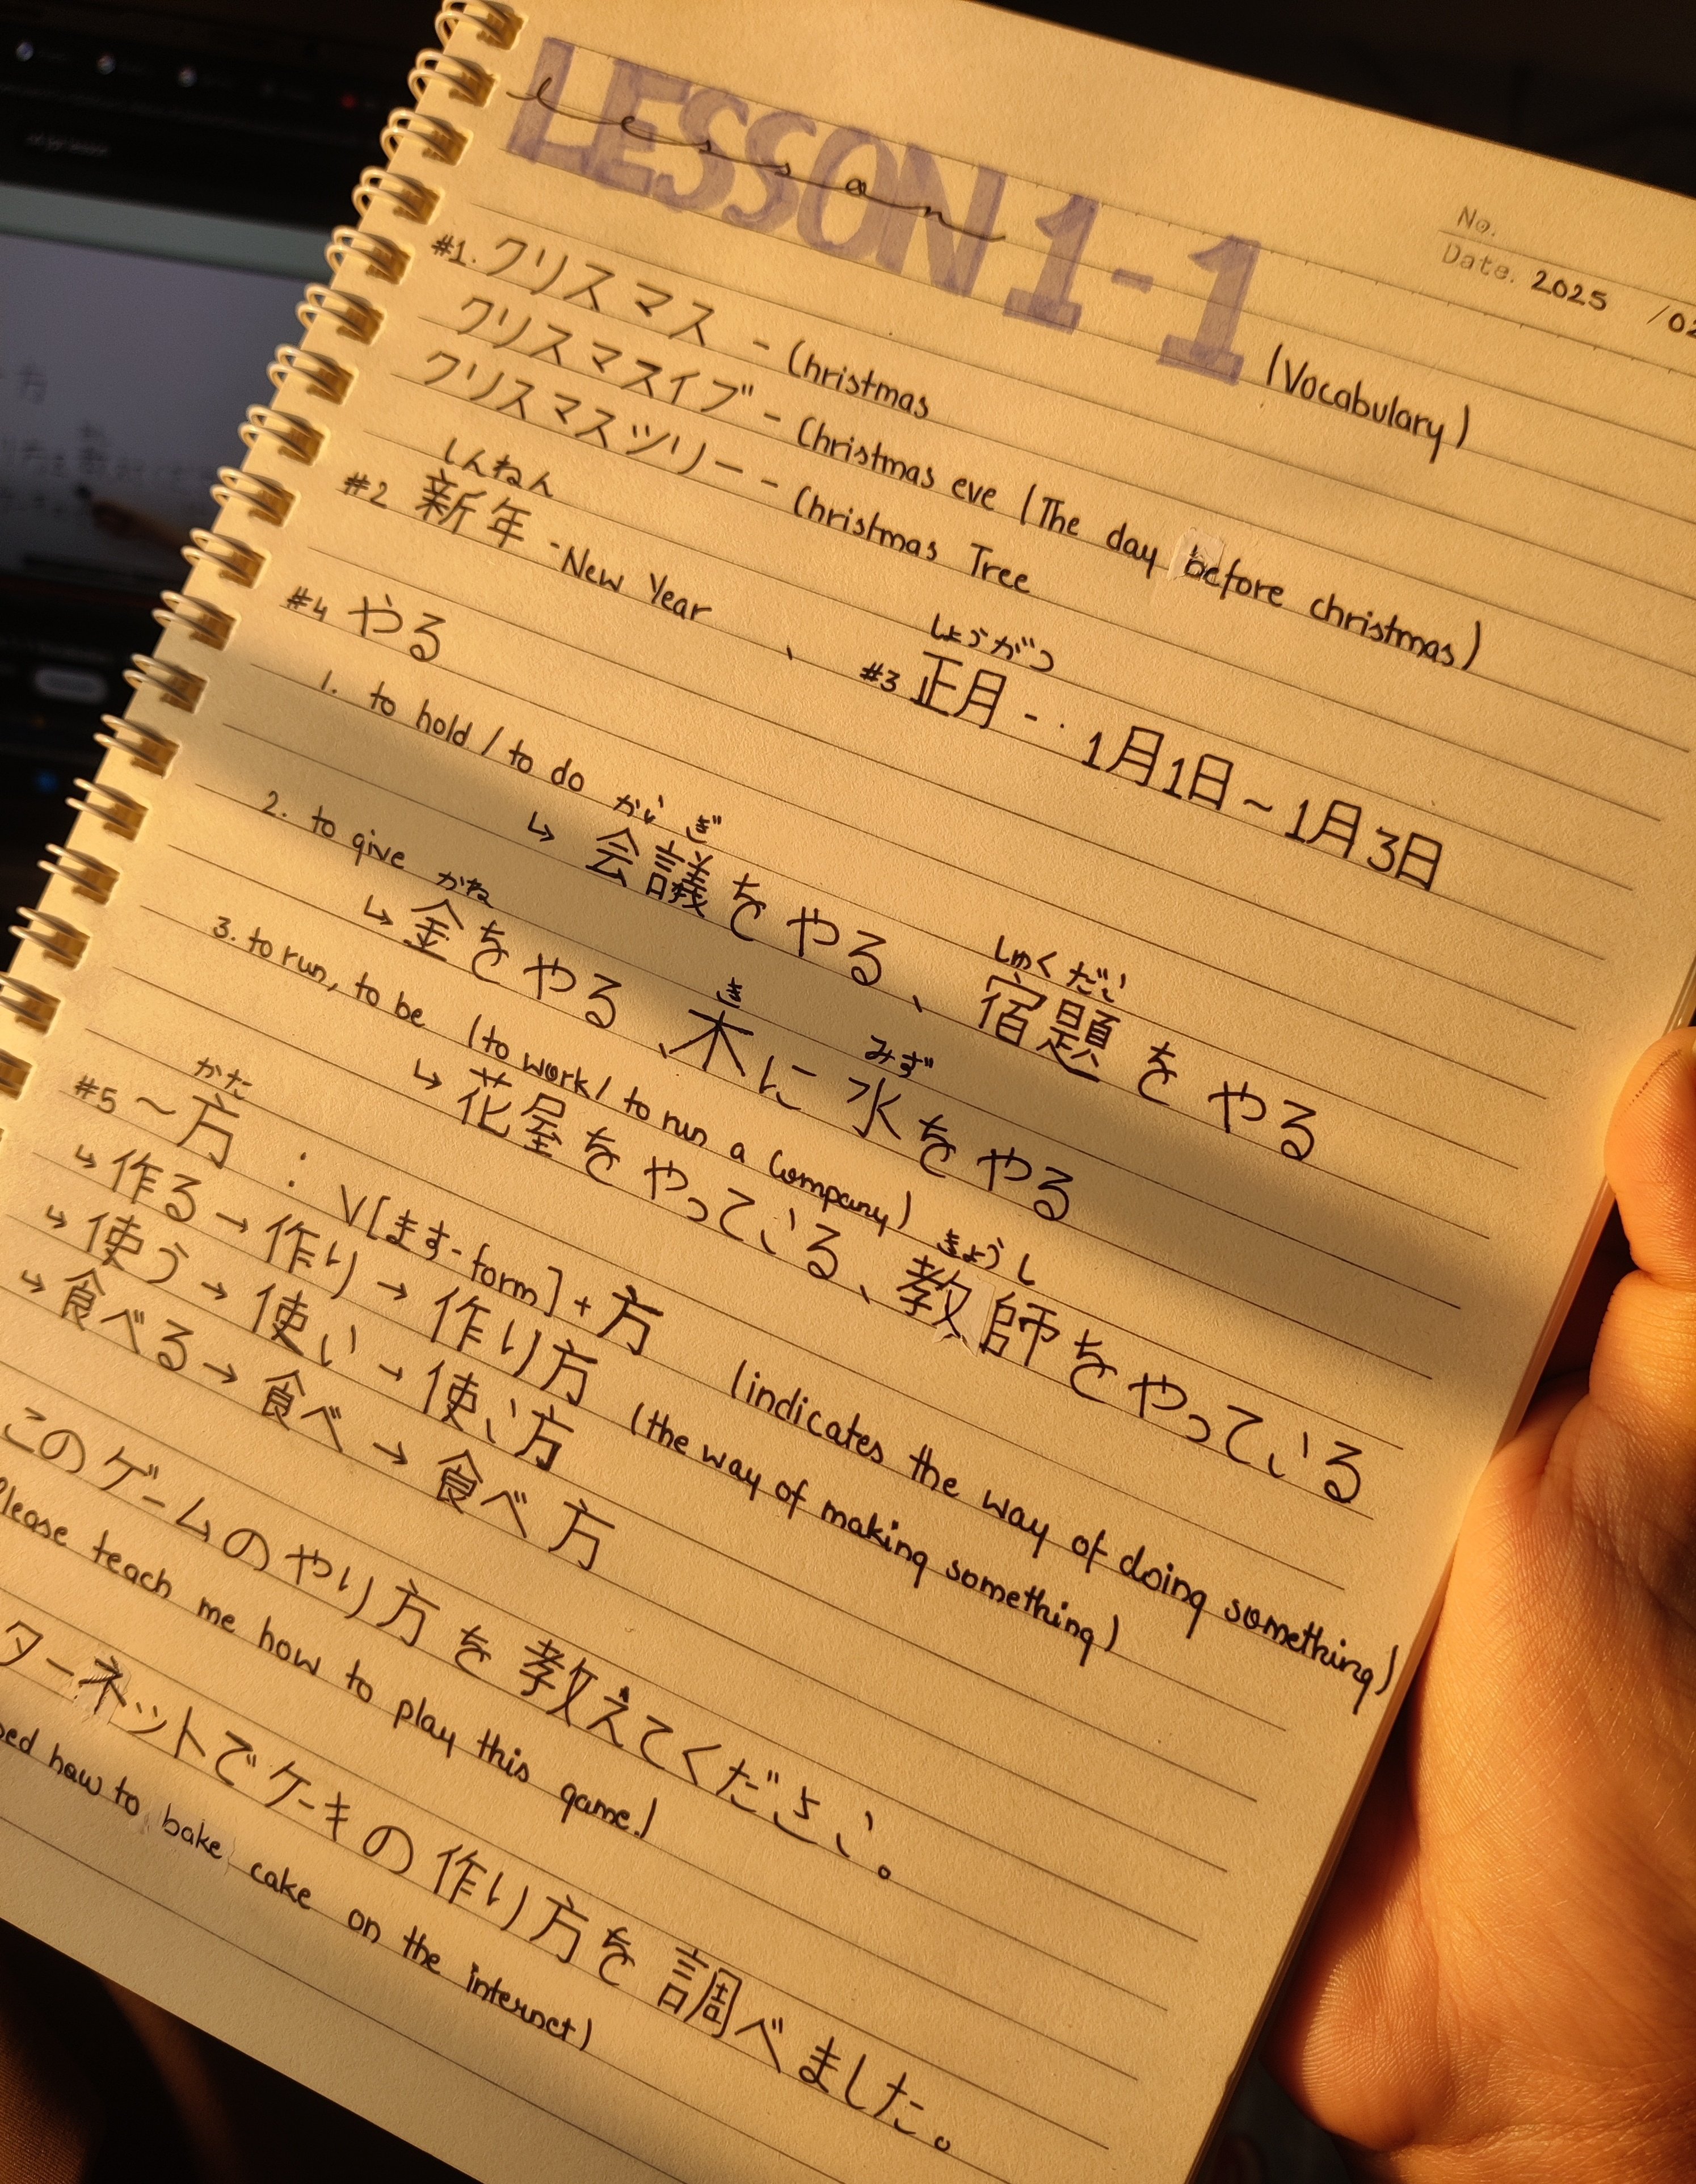 LESSON 1-1
lesson
(Vocabulary)
No.
Date. 2025 /02
#1. クリスマス - Christmas
クリスマスイブ - Christmas eve (The day before christmas)
クリスマスツリー - Christmas Tree
しんねん
#2 新年 - New Year 、
しょうがつ
#3 正月 - . 1月1日~1月3日
#4 やる
1. to hold / to do
かいぎ しゅくだい
↳ 会議をやる、宿題をやる
2. to give
かね き みず
↳ 金をやる、木に水をやる
3. to run, to be (to work / to run a company)
きょうし
↳ 花屋をやっている、教師をやっている
かた
#5 ~方 : V[ます-form] + 方 (indicates the way of doing something)
↳ 作る → 作り → 作り方 (the way of making something)
↳ 使う → 使い → 使い方
↳ 食べる → 食べ → 食べ方
このゲームのやり方を教えてください。
Please teach me how to play this game.)
ターネットでケーキの作り方を調べました。
how to bake cake on the internet)